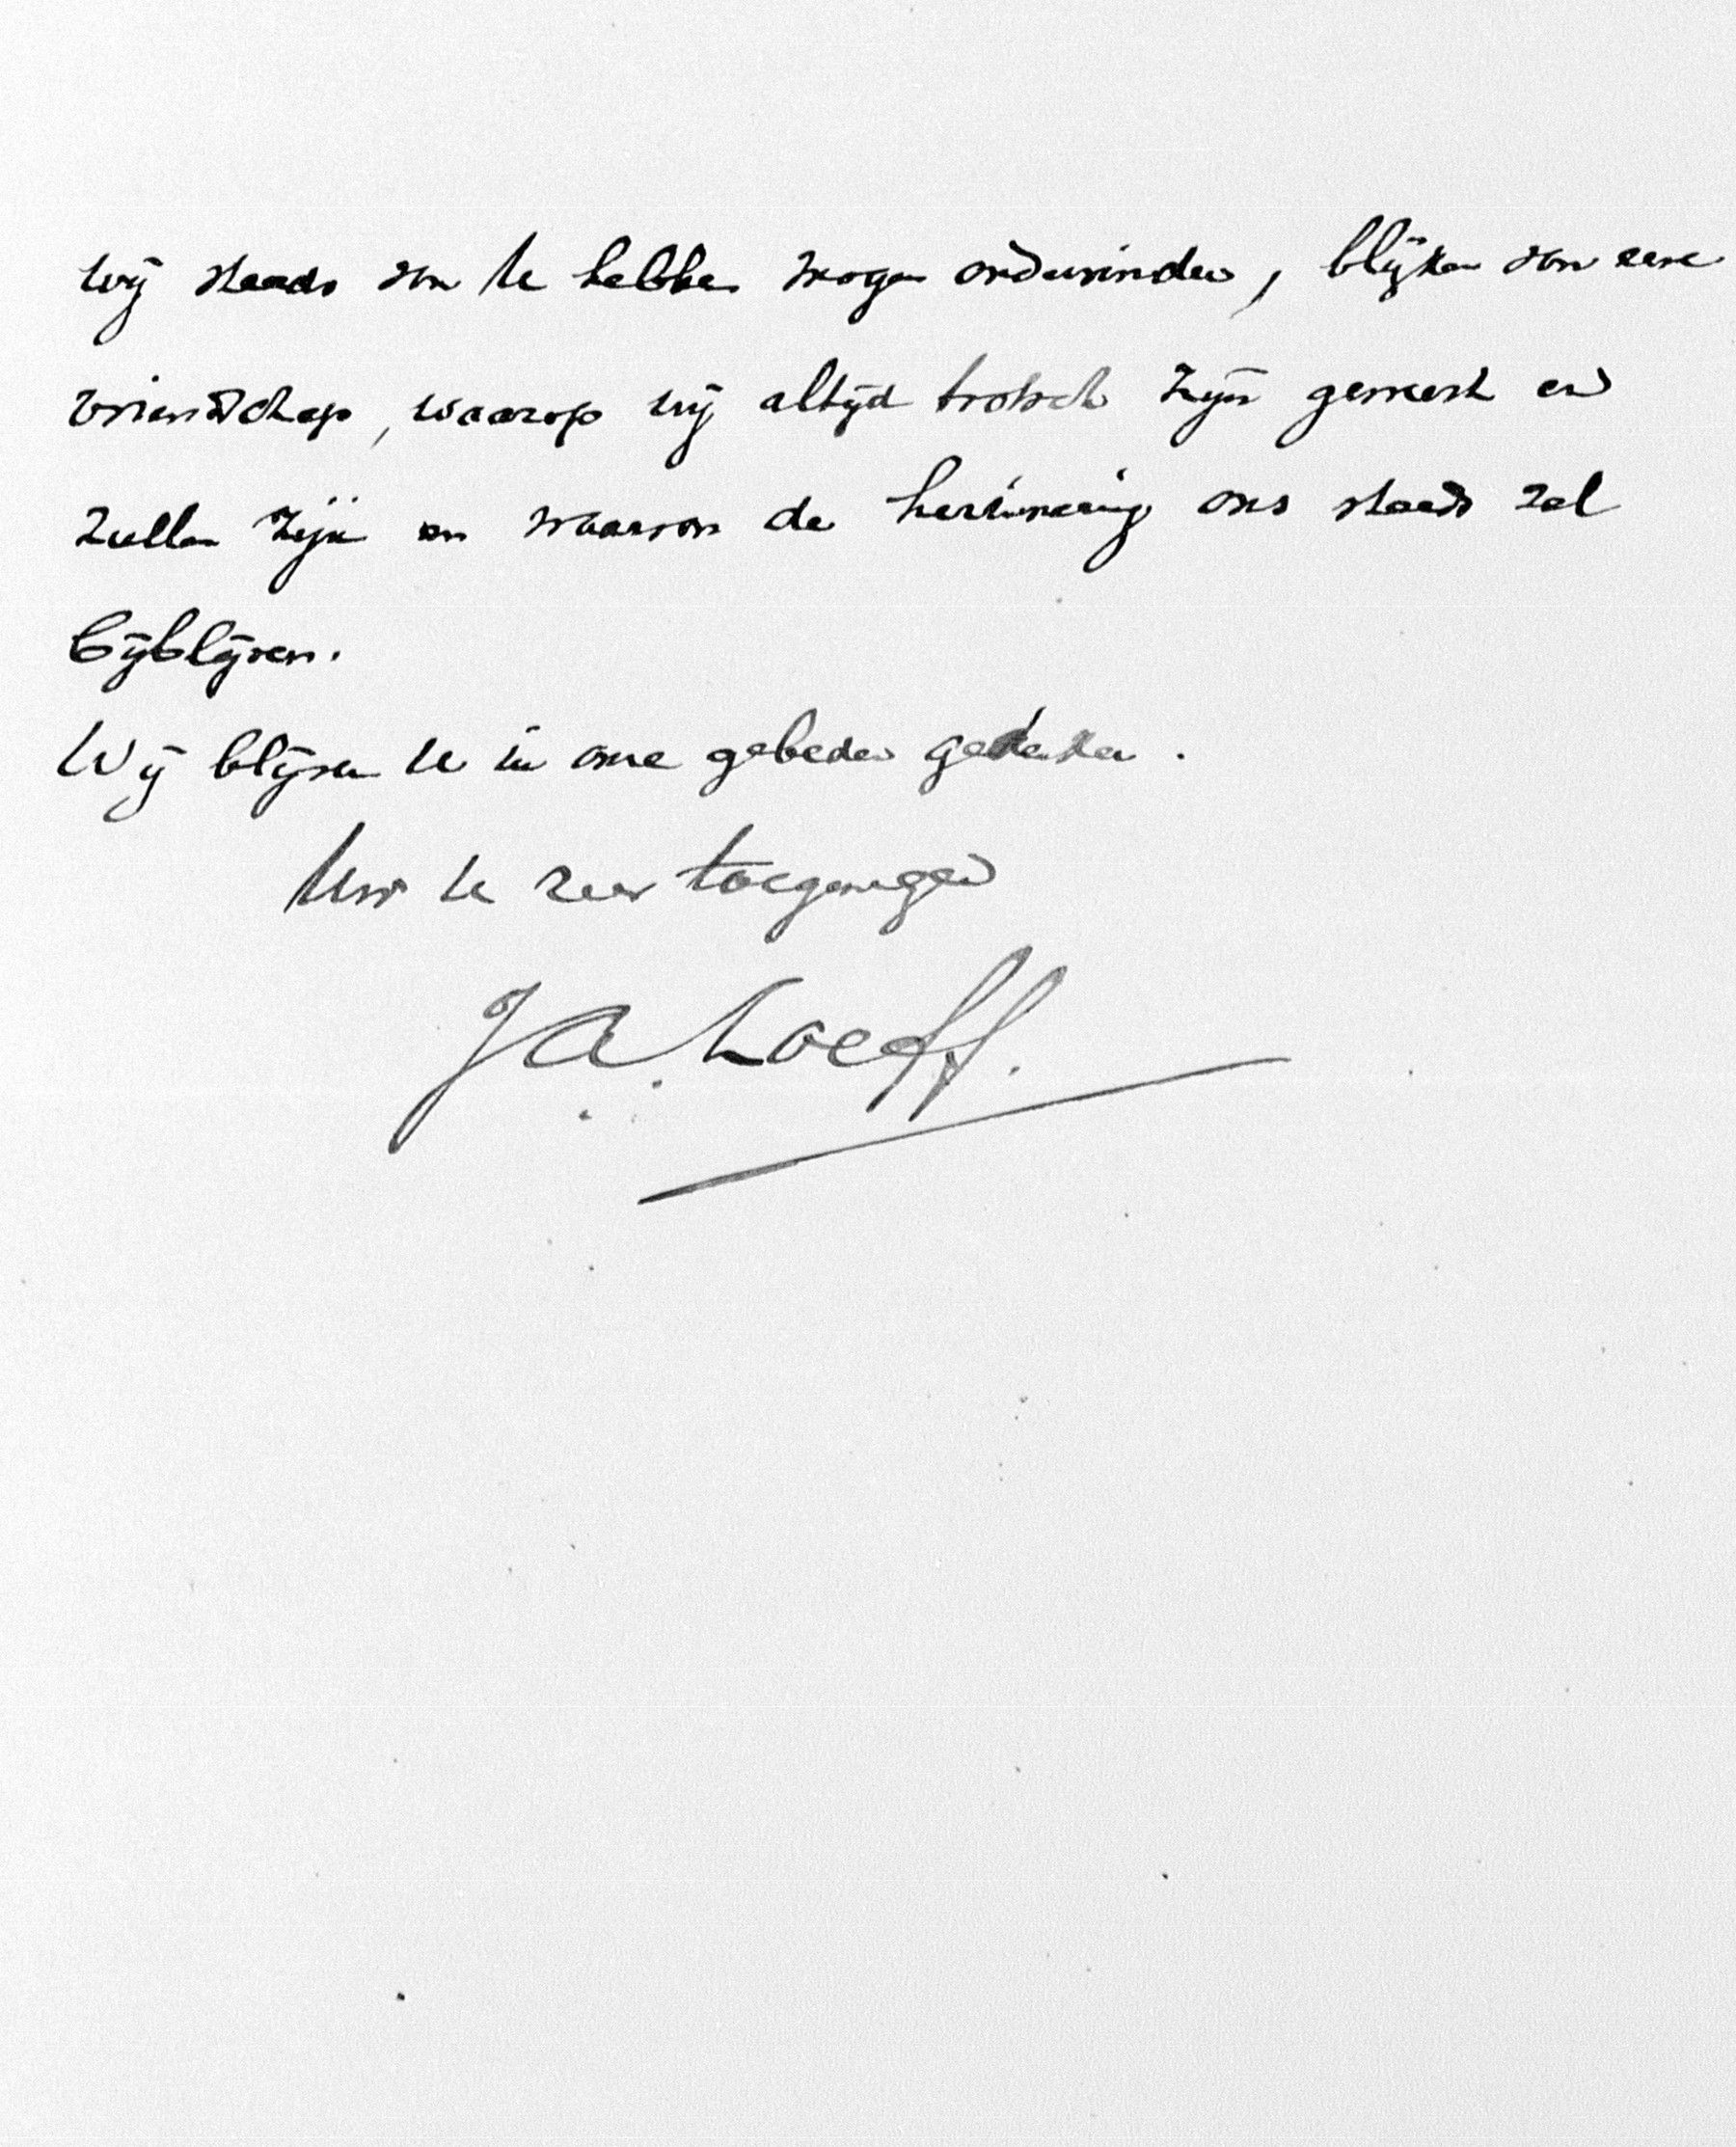 wij steeds van U hebben mogen ondervinden, blijken van eene
vriendschap, waarop wij altijd trotsch zijn geweest en
zullen zijn en waarvan de herinnering ons steeds zal
bijblijven.
Wij blijven U in onze gebeden gedenken.
Uw U zeer toegenegen
J.A. Loeff.